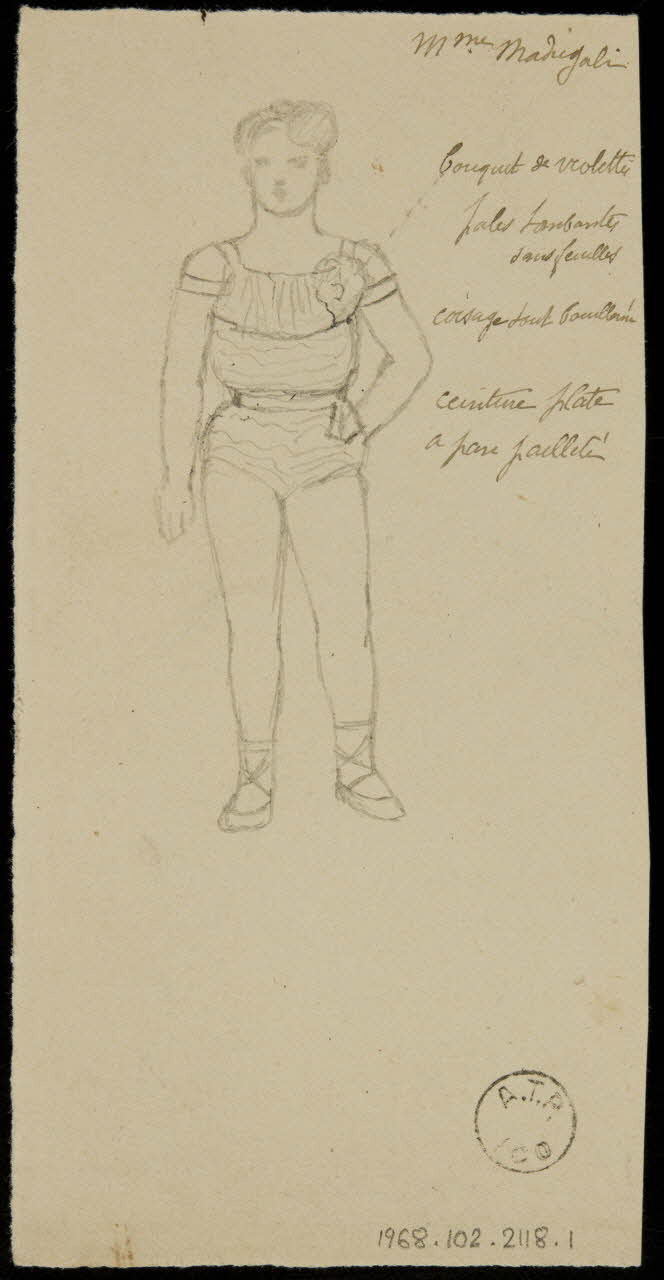 Mme Madrigali
bouquet de violettes
pales tombantes
sans feuilles
corsage tout bouillonné
ceinture plate
a pan pailleté
A.T.P.
CO
1968.102.2118.1